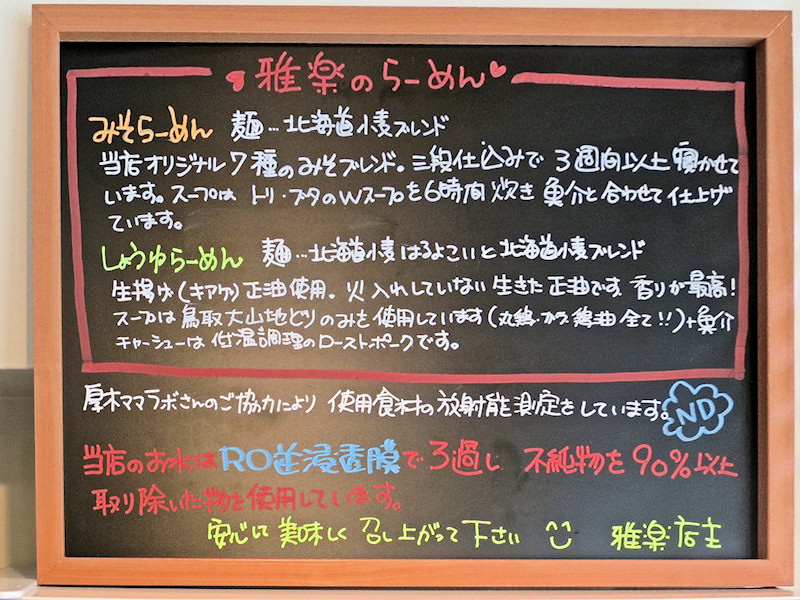 雅楽のらーめん
みそらーめん 麺…北海道小麦ブレンド
当店オリジナル7種のみそブレンド。三段仕込みで 3週間以上 寝かせて
います。スープは トリ・ブタのWスープを6時間 炊き 魚介と合わせて 仕上げ
ています。
しょうゆらーめん 麺…北海道小麦はるよこいと北海道小麦ブレンド
生揚げ(キアゲ)正油使用。火入れしていない 生きた 正油です 香りが最高!
スープは 鳥取大山地どりのみを使用しています(丸鶏・ガラ 鶏油 全て!!)+魚介
チャーシューは 低温調理のローストポークです。
厚木ママラボさんのご協力により 使用食材の放射能測定をしています。ND
当店のお水はRO逆浸透膜で3過し 不純物を90%以上
取り除いた物を使用しています。
安心して 美味しく 召し上がって下さい ^^ 雅楽店主